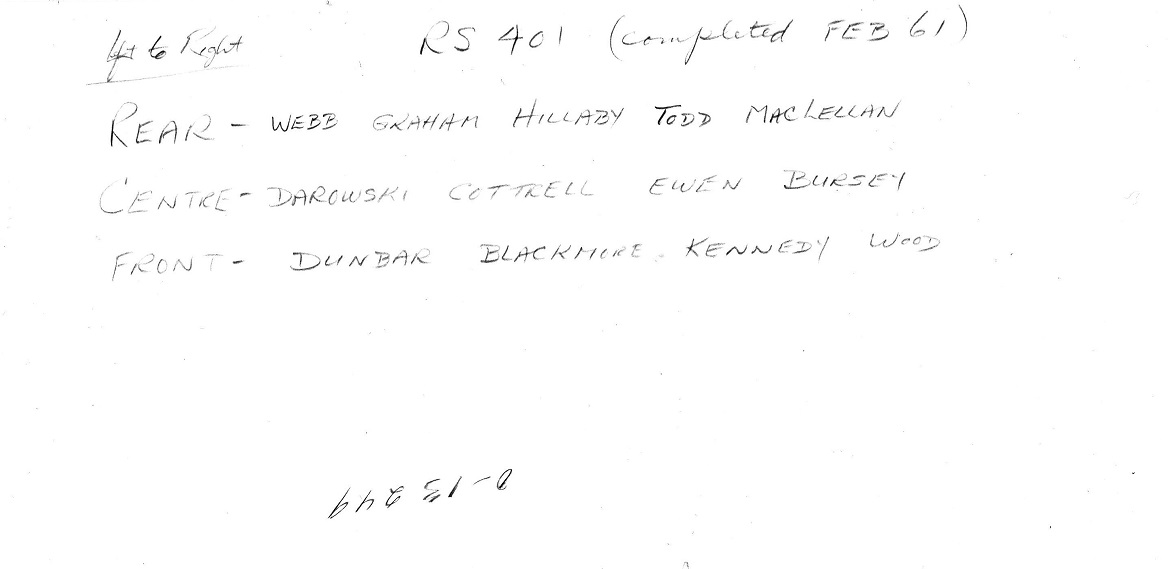 Lft to Right RS 401 (completed FEB 61)
REAR - WEBB GRAHAM HILLABY TODD MACLELLAN
CENTRE - DAROWSKI COTTRELL EWEN BURSEY
FRONT - DUNBAR BLACKMORE. KENNEDY WOOD